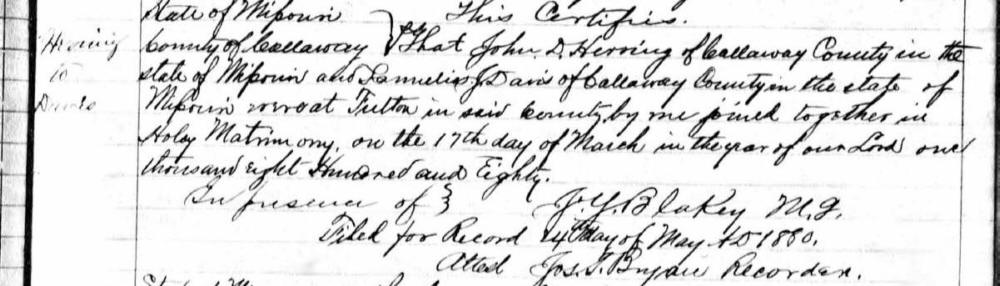 State of Missouri } This Certifies.
Herring County of Callaway } That John D. Herring of Callaway County in the
to state of Missouri and J. Davis of Callaway County in the state of
Davis Missouri were at Fulton in said County, by me joined together in
Holy Matrimony, on the 17th day of March in the year of our Lord one
thousand eight Hundred and Eighty.
In presence of } J. Y. Blakey M.G.
Filed for Record day of May AD 1880.
Attest Jos. T. Bryan Recorder.
State of